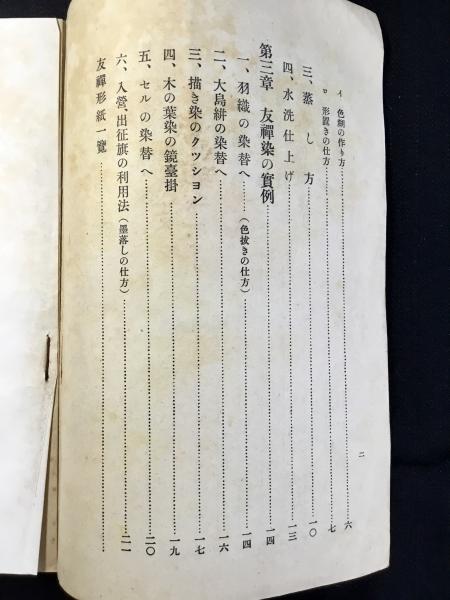 イ 色糊の作り方……六
ロ 形置きの仕方……七
三、蒸し方……一〇
四、水洗仕上げ……一三
第三章 友禪染の實例……一四
一、羽織の染替へ……(色拔きの仕方)……一四
二、大島絣の染替へ……一六
三、描き染のクツシヨン……一七
四、木の葉染の鏡臺掛……一九
五、セルの染替へ……二〇
六、入營、出征旗の利用法(墨落しの仕方)……二一
友禪形紙一覽
二